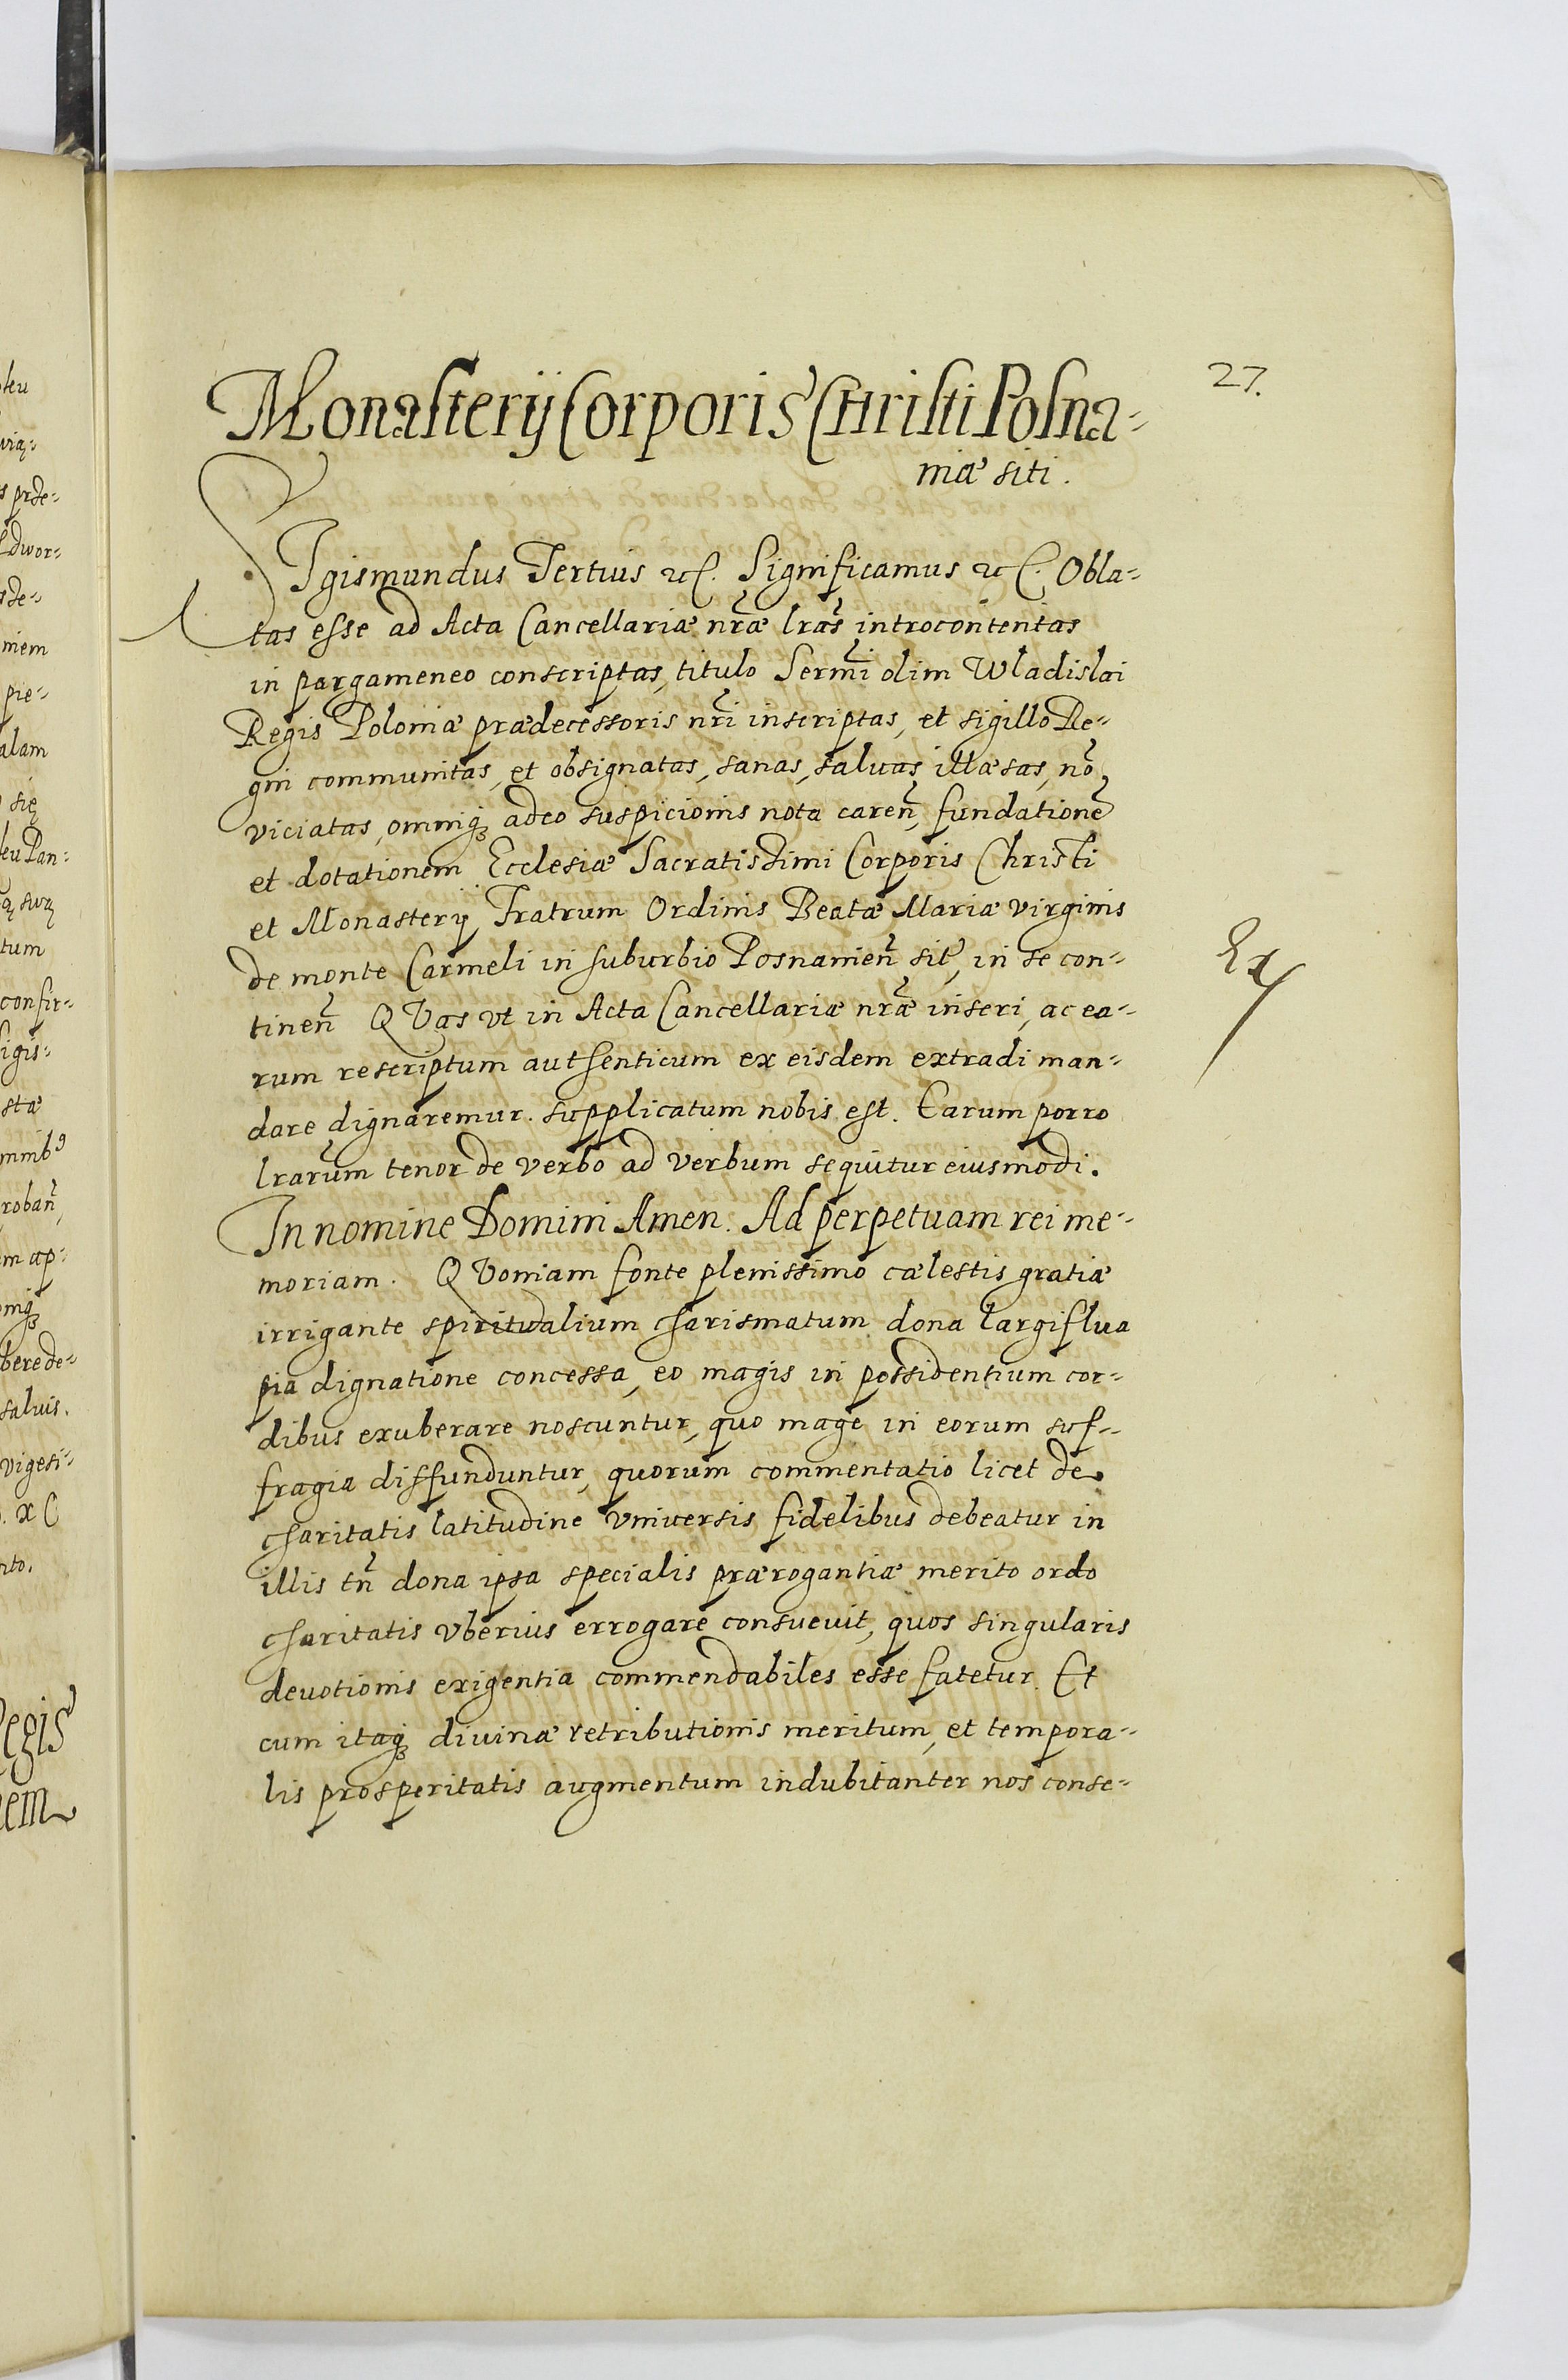 27.
Monasterij Corporis Christi Posna-
niæ siti.
SIgismundus Tertius etc. Significamus etc. Obla-
tas esse ad Acta Cancellariæ nr̃æ lr̃as introcontentas
in pargameneo conscriptas, titulo Serm̃i olim Wladislai
Regis Poloniæ prædecessoris nr̃i inscriptas, et sigillo Re-
gni communitas, et obsignatas, sanas, saluas, illæsas, nõ
viciatas, omniq; adeo suspicionis nota careñ, fundationẽ
et dotationem Ecclesiæ Sacratissimi Corporis Christi
et Monasterij Fratrum Ordinis Beatæ Mariæ virginis
de monte Carmeli in suburbio Posnanieñ sit̃, in se con-
tineñ QVas vt in Acta Cancellariæ nr̃æ inseri, ac ea-
rum rescriptum authenticum ex eisdem extradi man-
dare dignaremur. supplicatum nobis est. Earum porro
lrarum tenor de verbo ad verbum sequitur eiusmodi.
In nomine Domini Amen. Ad perpetuam rei me-
moriam. QVoniam fonte plenissimo cælestis gratiæ
irrigante spiritualium charismatum dona largiflua
pia dignatione concessa, eo magis in possidentium cor-
dibus exuberare noscuntur, quo mage in eorum suf-
fragia diffunduntur, quorum commentatio licet de
charitatis latitudine vniuersis fidelibus debeatur in
illis tñ dona ipsa specialis prærogantiæ merito ordo
charitatis vberius errogare consueuit, quos singularis
deuotionis exigentia commendabiles esse fatetur. Et
cum itaq; diuinæ retributionis meritum, et tempora-
lis prosperitatis augmentum indubitanter nos conse-